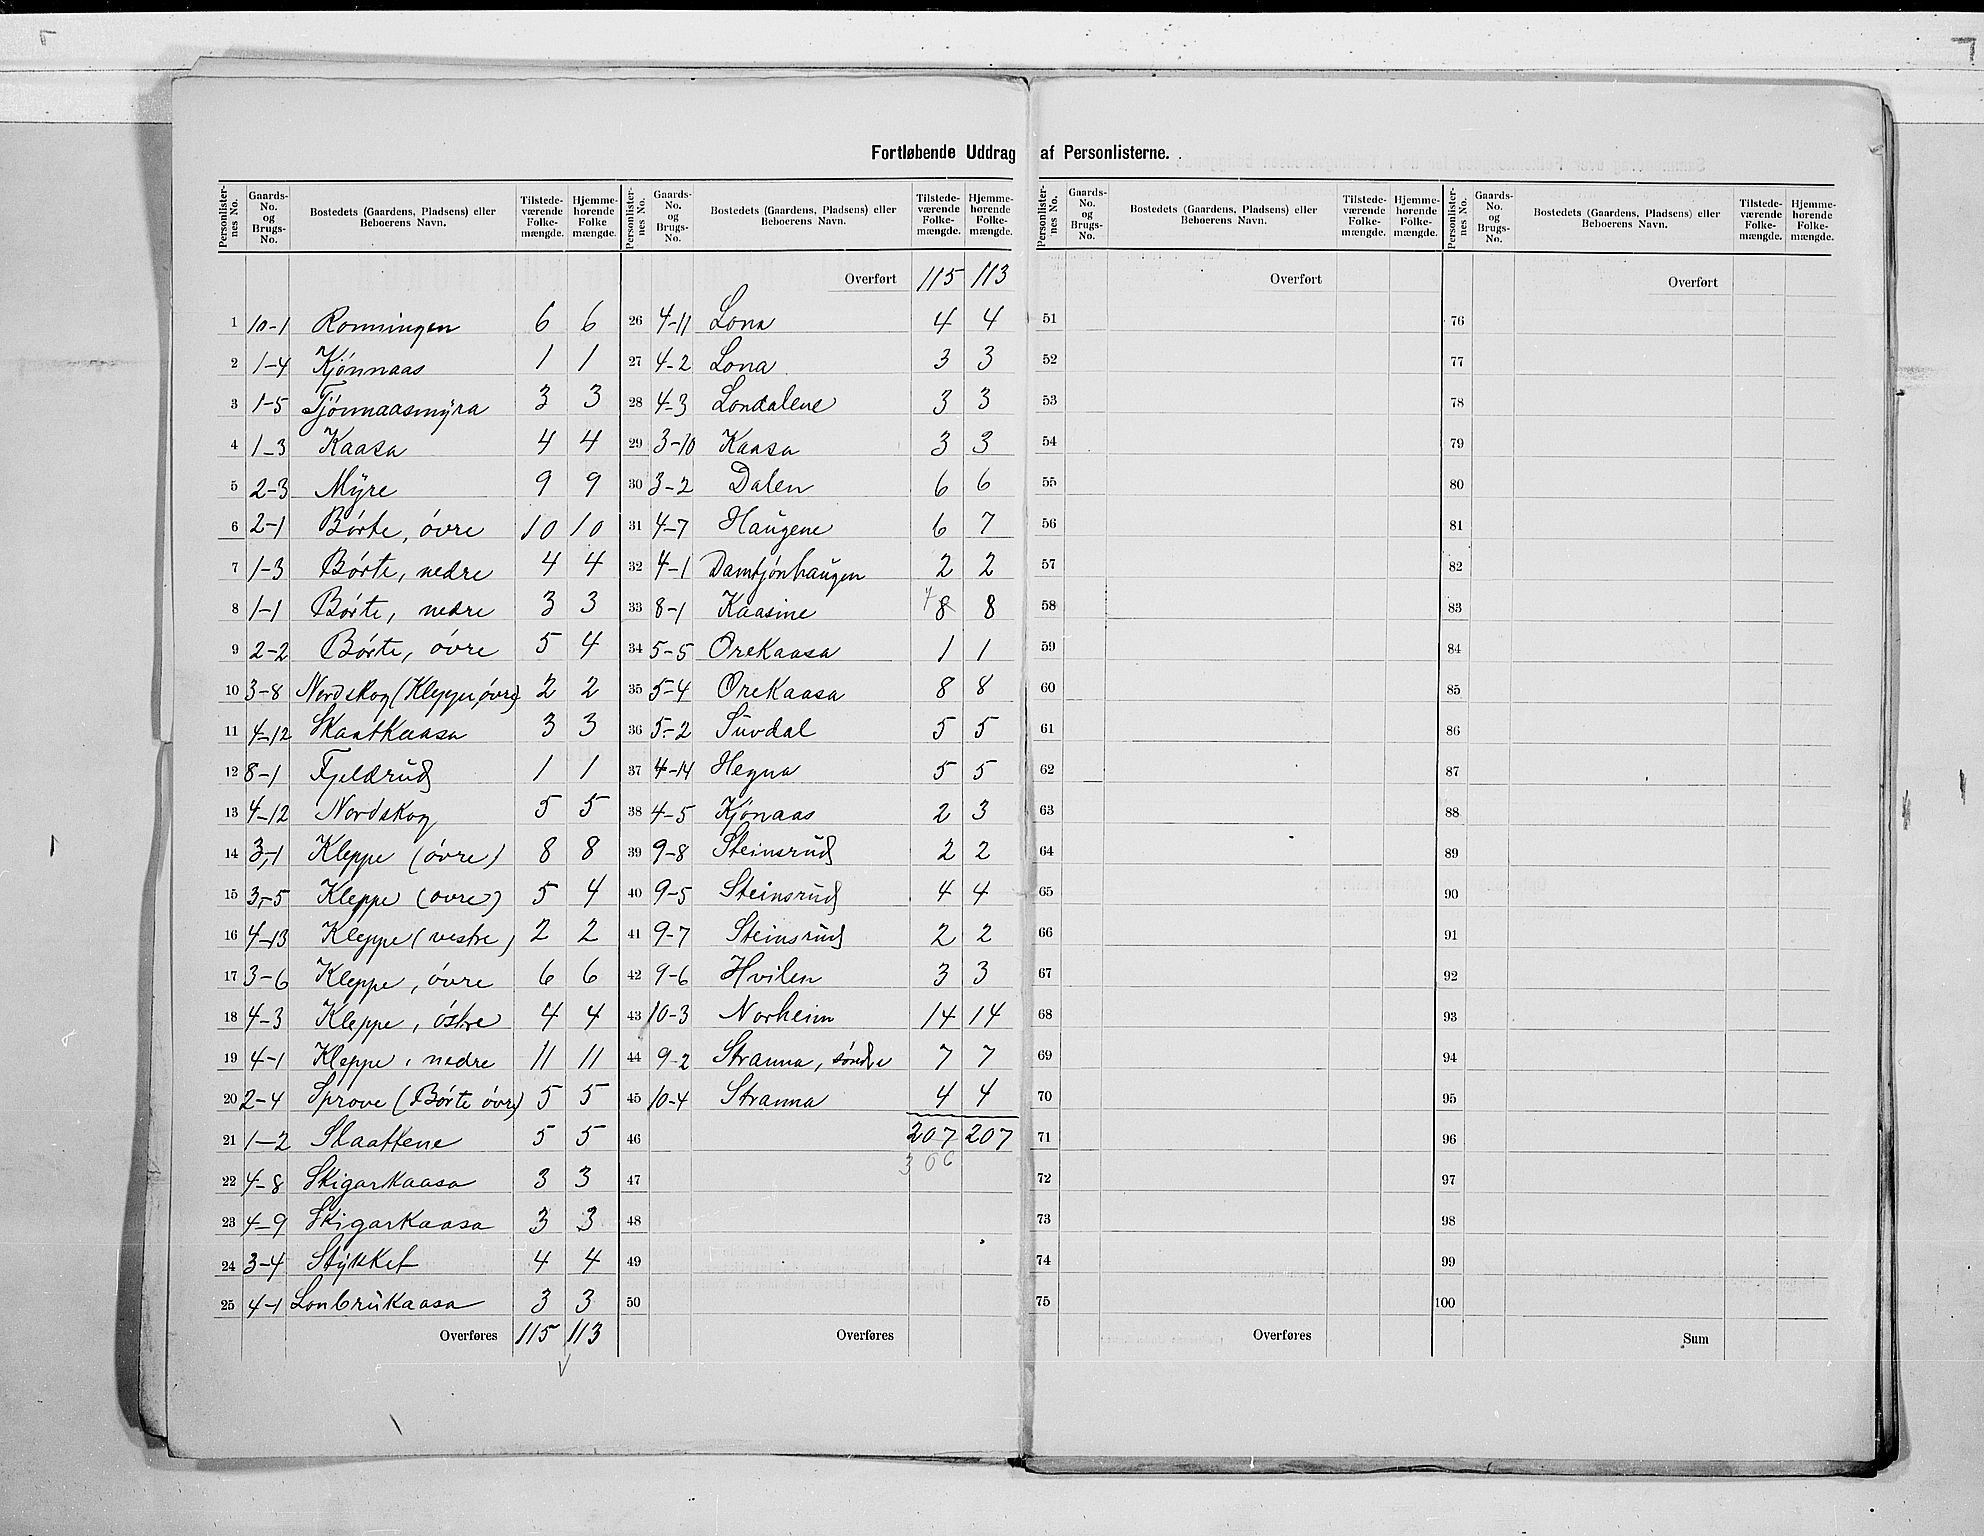 Fortløbende Uddrag af Personlisterne.
Personlisternes No. Gaards-No. og Brugs-No. Bostedets (Gaardens, Pladsens) eller Beboerens Navn. Tilstedeværende Folkemængde. Hjemmehørende Folkemængde.
1 10-1 Ronningen 6 6
2 1-4 Kjønnaas 1 1
3 1-5 Tjønnaasmyra 3 3
4 1-3 Kaasa 4 4
5 2-3 Myre 9 9
6 2-1 Børte, óvre 10 10
7 1-3 Børte, nedre 4 4
8 1-1 Børte, nedre 3 3
9 2-2 Børte, óvre 5 4
10 3-8 Nordskog (Kleppe, óvre) 2 2
11 4-12 Skaatkaasa 3 3
12 8-1 Fjeldrud 1 1
13 4-12 Nordskog 5 5
14 3-1 Kleppe (óvre) 8 8
15 3-5 Kleppe (ovre) 5 4
16 4-13 Kleppe (vestre) 2 2
17 3-6 Kleppe, óvre 6 6
18 4-3 Kleppe, óstre 4 4
19 4-1 Kleppe, nedre 11 11
20 2-4 Sprove (Børte óvre) 5 5
21 1-2 Slaattene 5 5
22 4-8 Skigarkaasa 3 3
23 4-9 Skigarkaasa 3 3
24 3-4 Stykket 4 4
25 4-1 Lonbrukaasa 3 3
Overføres 115 113
Personlisternes No. Gaards-No. og Brugs-No. Bostedets (Gaardens, Pladsens) eller Beboerens Navn. Tilstedeværende Folkemængde. Hjemmehørende Folkemængde.
Overført 115 113
26 4-11 Lona 4 4
27 4-2 Lona 3 3
28 4-3 Londalene 3 3
29 3-10 Kaasa 3 3
30 3-2 Dalen 6 6
31 4-7 Haugene 6 7
32 4-1 Damtjónhaugen 2 2
33 8-1 Kaasine 7 8 8
34 5-5 Orekaasa 1 1
35 5-4 Orekaasa 8 8
36 5-2 Suvdal 5 5
37 4-14 Hegna 5 5
38 4-5 Kjónaas 2 3
39 9-8 Steinsrud 2 2
40 9-5 Steinsrud 4 4
41 9-7 Steinsrud 2 2
42 9-6 Hvilen 3 3
43 10-3 Norheim 14 14
44 9-2 Stranna, søndre 7 7
45 10-4 Stranna 4 4
46 207 207
306
47
48
49
50
Overføres
Personlisternes No. Gaards-No. og Brugs-No. Bostedets (Gaardens, Pladsens) eller Beboerens Navn. Tilstedeværende Folkemængde. Hjemmehørende Folkemængde.
Overført
51
52
53
54
55
56
57
58
59
60
61
62
63
64
65
66
67
68
69
70
71
72
73
74
75
Overføres
Personlisternes No. Gaards-No. og Brugs-No. Bostedets (Gaardens, Pladsens) eller Beboerens Navn. Tilstedeværende Folkemængde. Hjemmehørende Folkemængde.
Overført
76
77
78
79
80
81
82
83
84
85
86
87
88
89
90
91
92
93
94
95
96
97
98
99
100
Sum